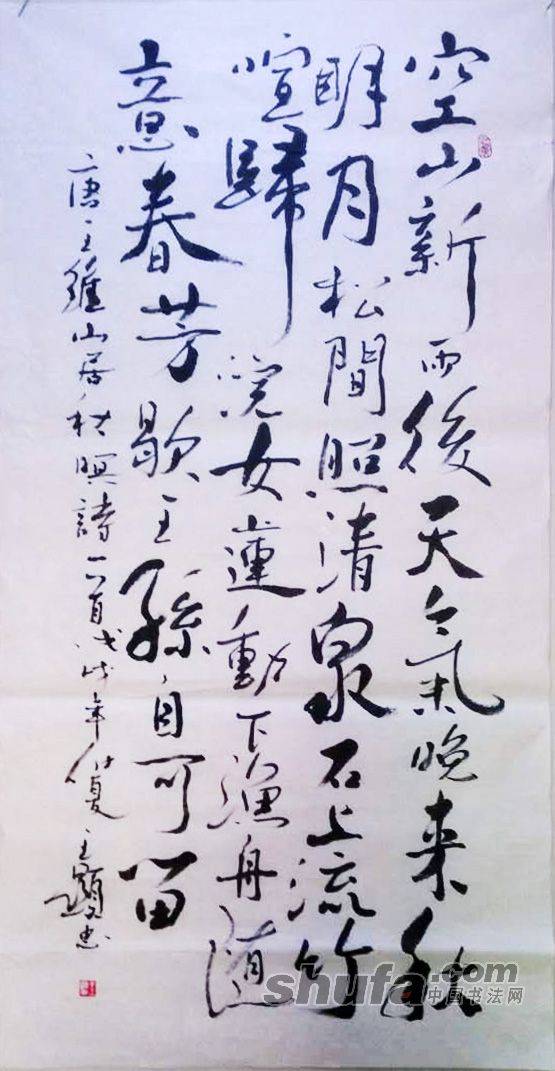 空山新雨後天氣晚来秋
明月松間照清泉石上流竹
喧歸浣女蓮動下漁舟随
意春芳歇王孫自可留
唐王維山居秋暝詩一首戊戌年夏王
shufa.com
中国书法网